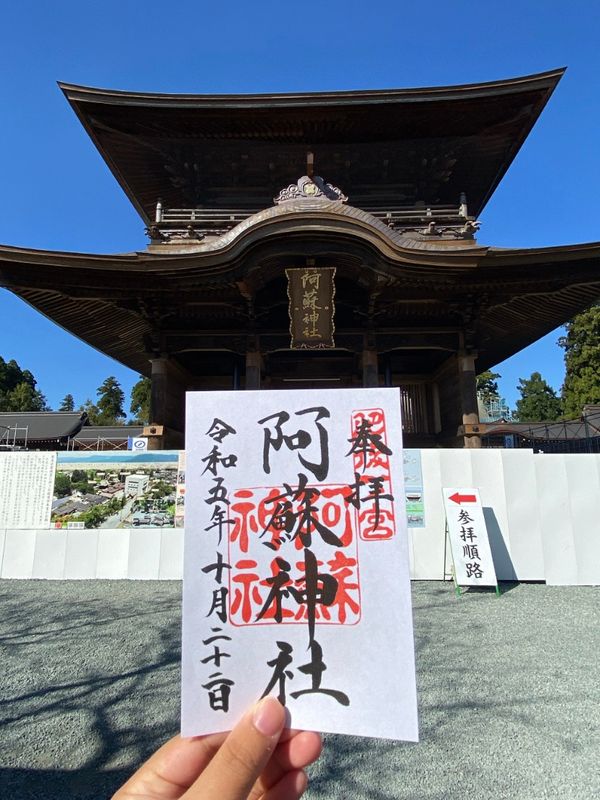 阿蘇神社
奉拝
阿蘇神社
令和五年十月二十二日
阿蘇神社
参拝順路